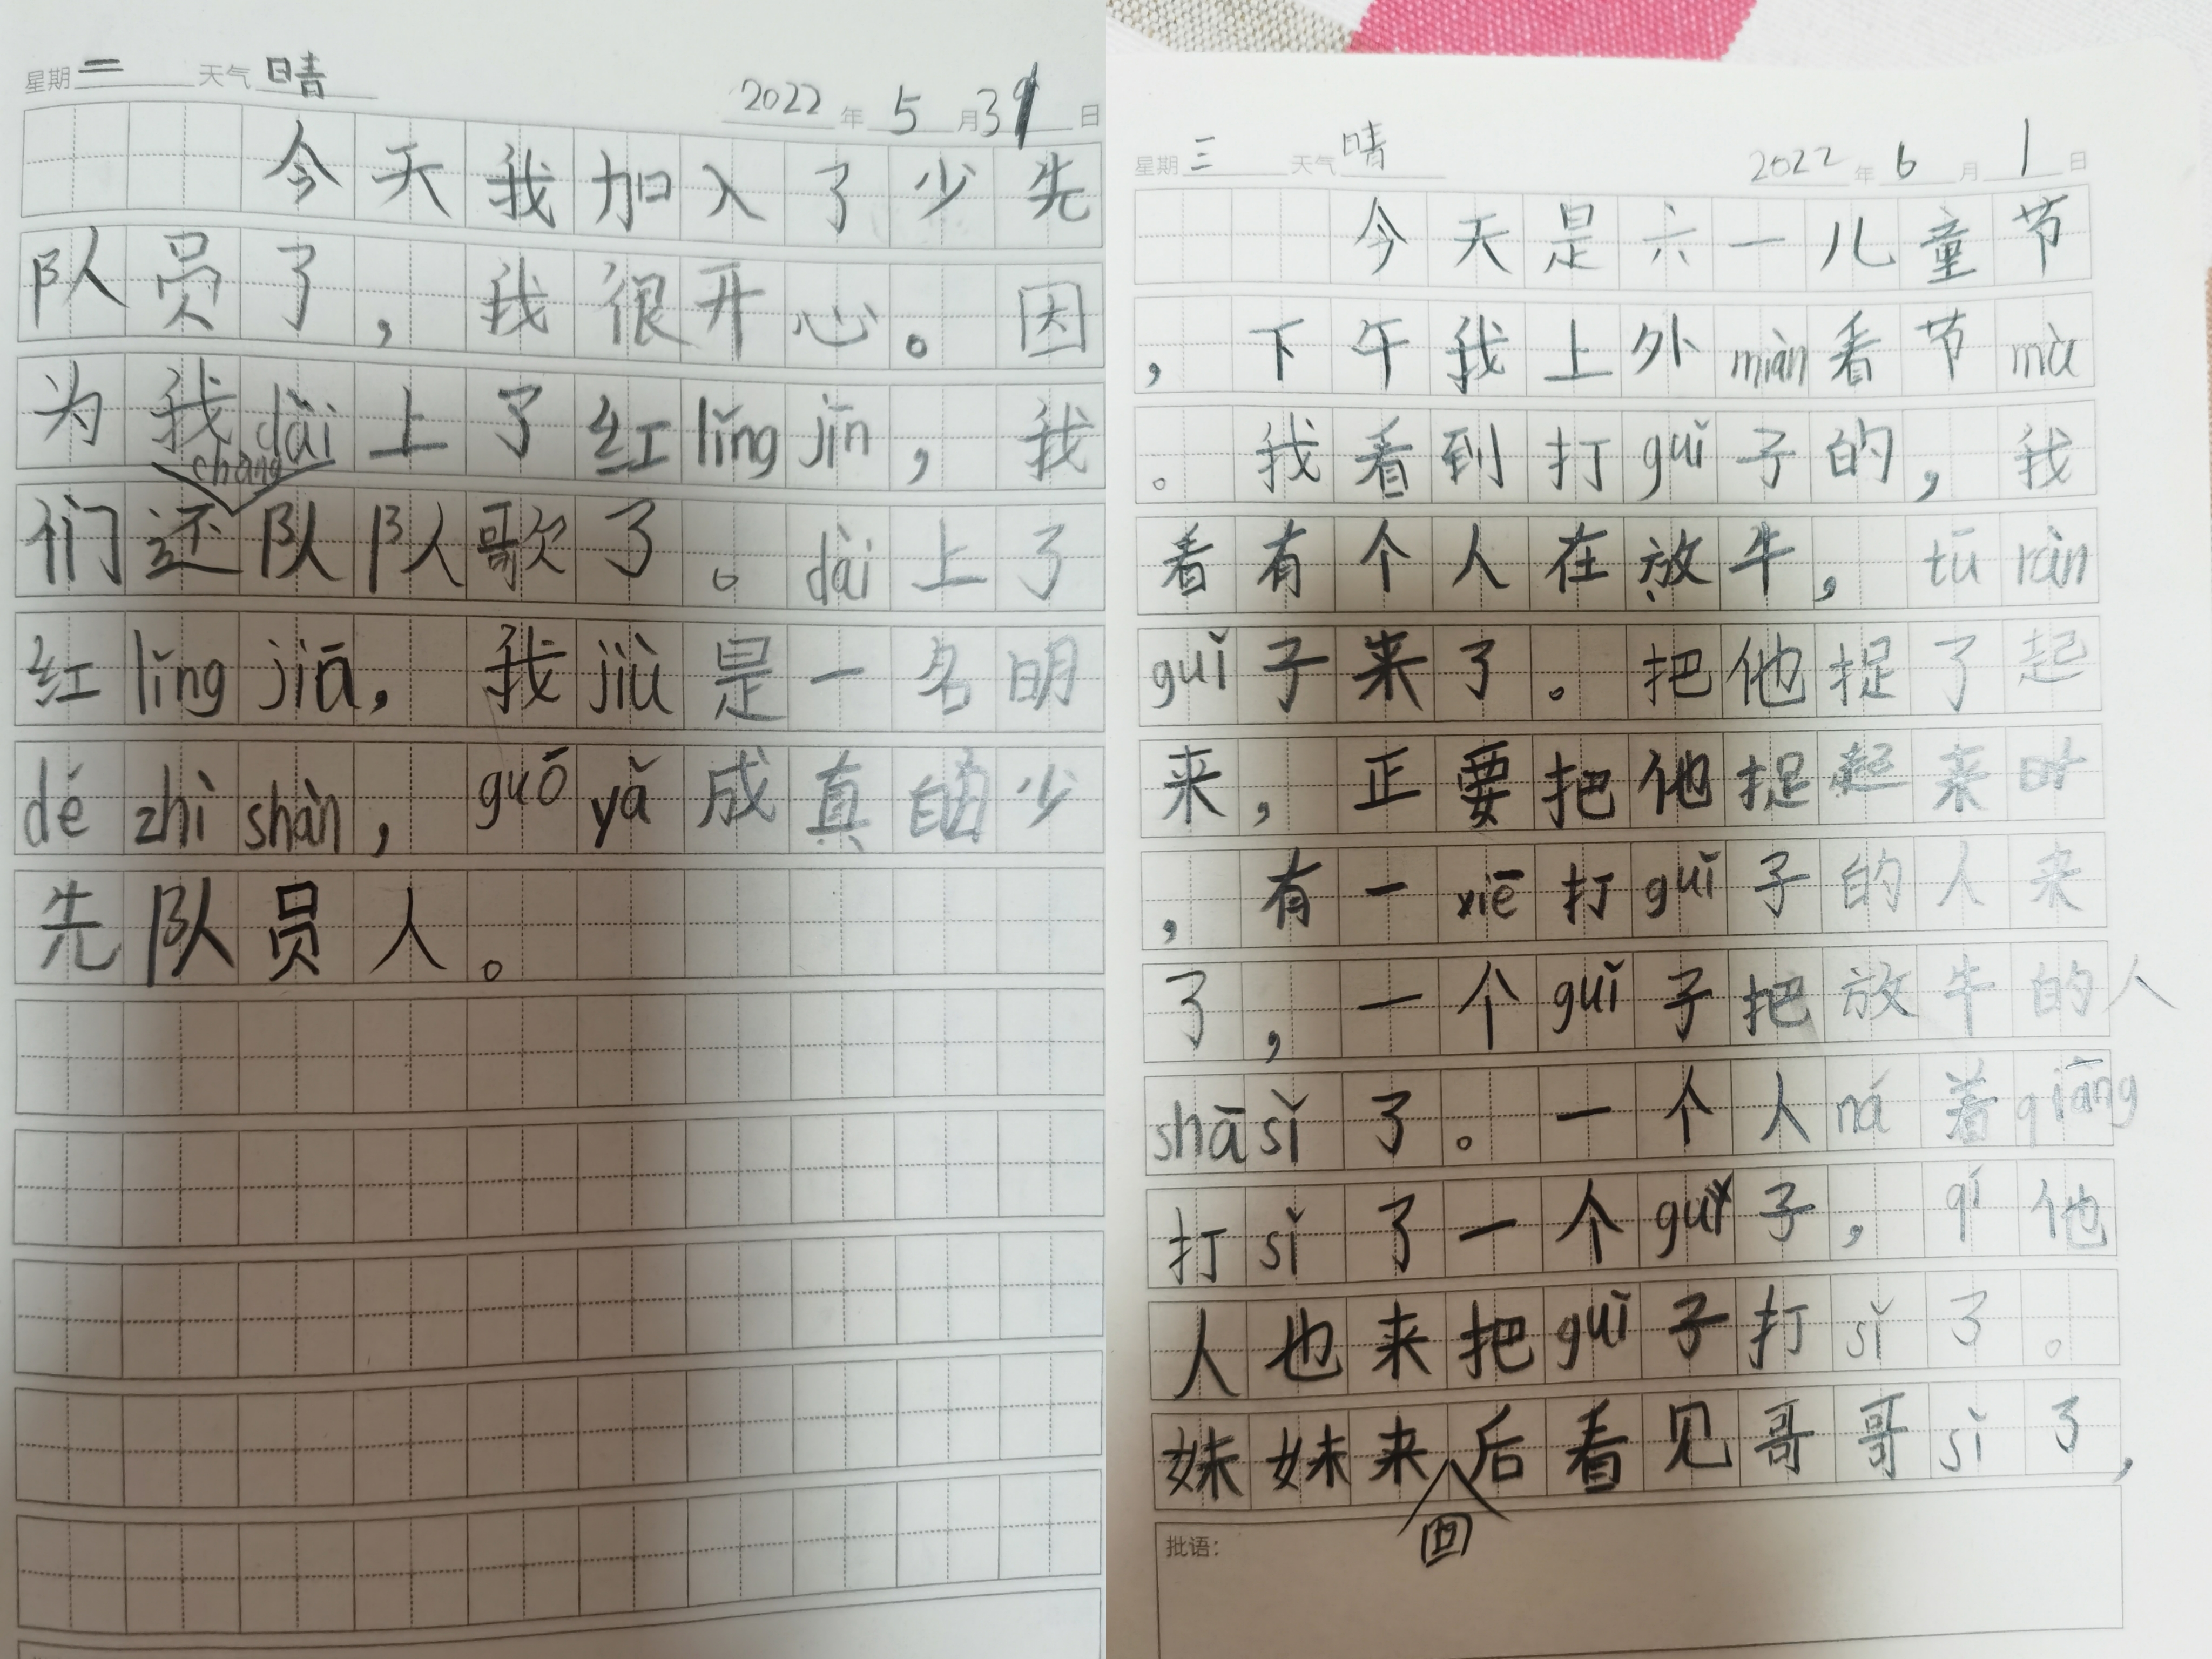 星期二 天气 晴 2022年5月31日
今天我加入了少先
队员了，我很开心。因
为我dài上了红lǐng jīn，我
chàng
们还队队歌了。dài上了
红lǐng jīn，我jiù是一名明
dé zhì shàn，guō yǎ成真的少
先队员人。
星期三 天气 晴 2022年6月1日
今天是六一儿童节
，下午我上外miàn看节mù
。我看到打guǐ子的，我
看有个人在放牛，tū rán
guǐ子来了。把他捉了起
来，正要把他捉起来时
，有一xiē打guǐ子的人来
了，一个guǐ子把放牛的人
shā sǐ了。一个人ná着qiāng
打sǐ了一个guǐ子，qí他
人也来把guǐ子打sǐ了。
妹妹来后看见哥哥sǐ了，
回
批语：